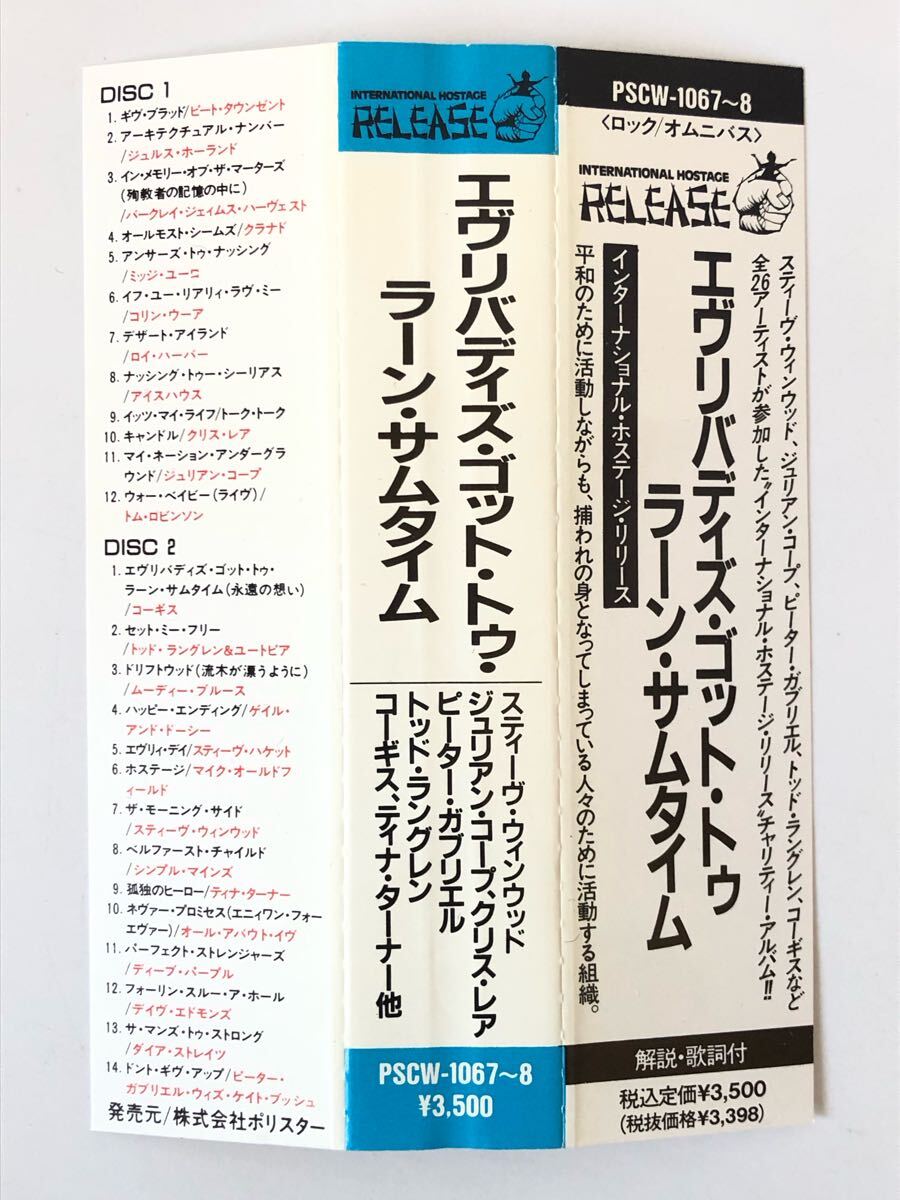 DISC 1
1. ギヴ・ブラッド/ピート・タウンゼント
2. アーキテクチュアル・ナンバー
/ジュルス・ホーランド
3. イン・メモリー・オブ・ザ・マーターズ
(殉教者の記憶の中に)
/バークレイ・ジェィムス・ハーヴェスト
4. オールモスト・シームズ/クラナド
5. アンサーズ・トゥ・ナッシング
/ミッジ・ユーロ
6. イフ・ユー・リアリィ・ラヴ・ミー
/コリン・ウーア
7. デザート・アイランド
/ロイ・ハーパー
8. ナッシング・トゥー・シーリアス
/アイスハウス
9. イッツ・マイ・ライフ/トーク・トーク
10. キャンドル/クリス・レア
11. マイ・ネーション・アンダーグラ
ウンド/ジュリアン・コープ
12. ウォー・ベイビー(ライヴ)/
トム・ロビンソン
DISC 2
1. エヴリバディズ・ゴット・トゥ・
ラーン・サムタイム(永遠の想い)
/コーギス
2. セット・ミー・フリー
/トッド・ラングレン&ユートピア
3. ドリフトウッド(流木が漂うように)
/ムーディー・ブルース
4. ハッピー・エンディング/ゲイル・
アンド・ドーシー
5. エヴリィ・デイ/スティーヴ・ハケット
6. ホステージ/マイク・オールドフ
ィールド
7. ザ・モーニング・サイド
/スティーヴ・ウィンウッド
8. ベルファースト・チャイルド
/シンプル・マインズ
9. 孤独のヒーロー/ティナ・ターナー
10. ネヴァー・プロミセス(エニィワン・フォー
エヴァー)/オール・アバウト・イヴ
11. パーフェクト・ストレンジャーズ
/ディープ・パープル
12. フォーリン・スルー・ア・ホール
/デイヴ・エドモンズ
13. サ・マンズ・トゥ・ストロング
/ダイア・ストレイツ
14. ドント・ギヴ・アップ/ピーター・
ガブリエル・ウィズ・ケイト・ブッシュ
発売元/株式会社ポリスター
INTERNATIONAL HOSTAGE
RELEASE
エヴリバディズ・ゴット・トゥ・
ラーン・サムタイム
スティーヴ・ウィンウッド
ジュリアン・コープ、クリス・レア
ピーター・ガブリエル
トッド・ラングレン
コーギス、ティナ・ターナー他
PSCW-1067〜8
¥3,500
PSCW-1067〜8
〈ロック/オムニバス〉
INTERNATIONAL HOSTAGE
RELEASE
スティーヴ・ウィンウッド、ジュリアン・コープ、ピーター・ガブリエル、トッド・ラングレン、コーギスなど
全26アーティストが参加した"インターナショナル・ホステージ・リリース"チャリティー・アルバム!!
エヴリバディズ・ゴット・トゥ
ラーン・サムタイム
インターナショナル・ホステージ・リリース
平和のために活動しながらも、捕われの身となってしまっている人々のために活動する組織。
解説・歌詞付
税込定価¥3,500
(税抜価格¥3,398)